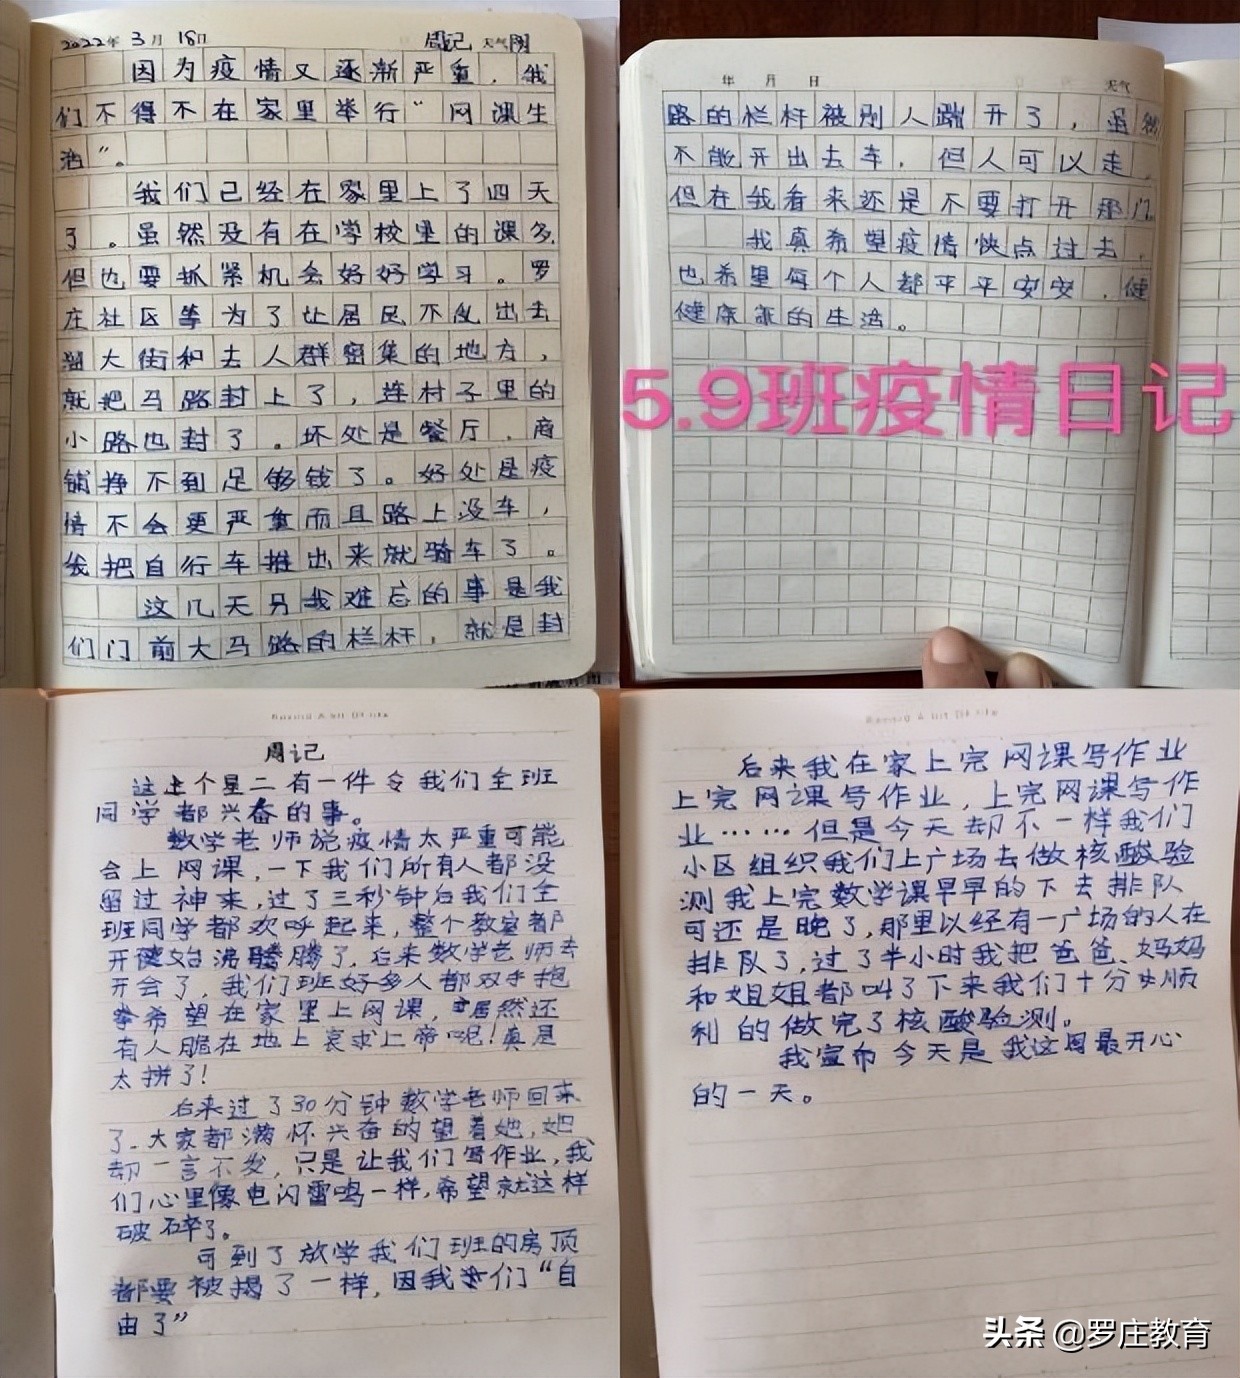 2022年 3月 18日 周记 天气阴
因为疫情又逐渐严重，我
们不得不在家里举行“网课生
活”。
我们已经在家里上了四天
了。虽然没有在学校里的课多，
但也要抓紧机会好好学习。罗
庄社区等为了让居民不乱出去
遛大街和去人群密集的地方，
就把马路封上了，连村子里的
小路也封了。坏处是餐厅，商
铺挣不到足够钱了。好处是疫
情不会更严重而且路上没车，
我把自行车推出来就骑车了。
这几天另我难忘的事是我
们门前大马路的栏杆，就是封
年 月 日 天气
路的栏杆被别人踹开了，虽然
不能开出去车，但人可以走，
但在我看来还是不要打开那门。
我真希望疫情快点过去，
也希望每个人都平平安安，健
健康康的生活。
5.9班疫情日记
Record A bit Of life
周记
这上个星二有一件令我们全班
同学都兴奋的事。
数学老师说疫情太严重可能
会上网课，一下我们所有人都没
留过神来，过了三秒钟后我们全
班同学都欢呼起来，整个教室都
开始沸腾腾了，后来数学老师去
开会了，我们班好多人都双手抱
拳希望在家里上网课，居然还
有人跪在地上哀求上帝呢！真是
太拼了！
后来过了30分钟数学老师回来
了，大家都满怀兴奋的望着她，她
却一言不发，只是让我们写作业，我
们心里像电闪雷鸣一样，希望就这样
破碎了。
可到了放学我们班的房顶
都要被揭了一样，因我们“自
由了”
Record A bit Of life
后来我在家上完网课写作业
上完网课写作业，上完网课写作
业……但是今天却不一样我们
小区组织我们上广场去做核酸验
测我上完数学课早早的下去排队
可还是晚了，那里以经有一广场的人在
排队了，过了半小时我把爸爸、妈妈
和姐姐都叫了下来我们十分顺
利的做完了核酸验测。
我宣布今天是我这周最开心
的一天。
头条 @罗庄教育